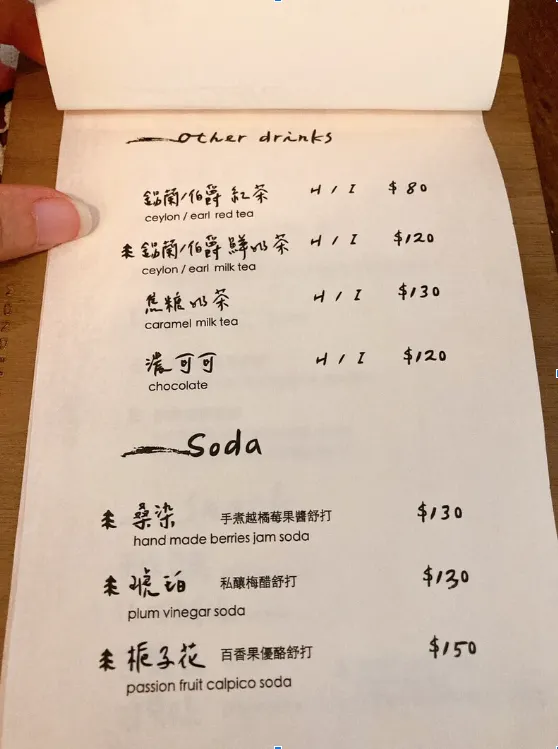 other drinks
錫蘭/伯爵 紅茶 H / I $80
ceylon / earl red tea
錫蘭/伯爵 鮮奶茶 H / I $120
ceylon / earl milk tea
焦糖奶茶 H / I $130
caramel milk tea
濃可可 H / I $120
chocolate
Soda
桑染 手煮越橘莓果醬舒打 $130
hand made berries jam soda
琥珀 私釀梅醋舒打 $130
plum vinegar soda
梔子花 百香果優酪舒打 $150
passion fruit calpico soda